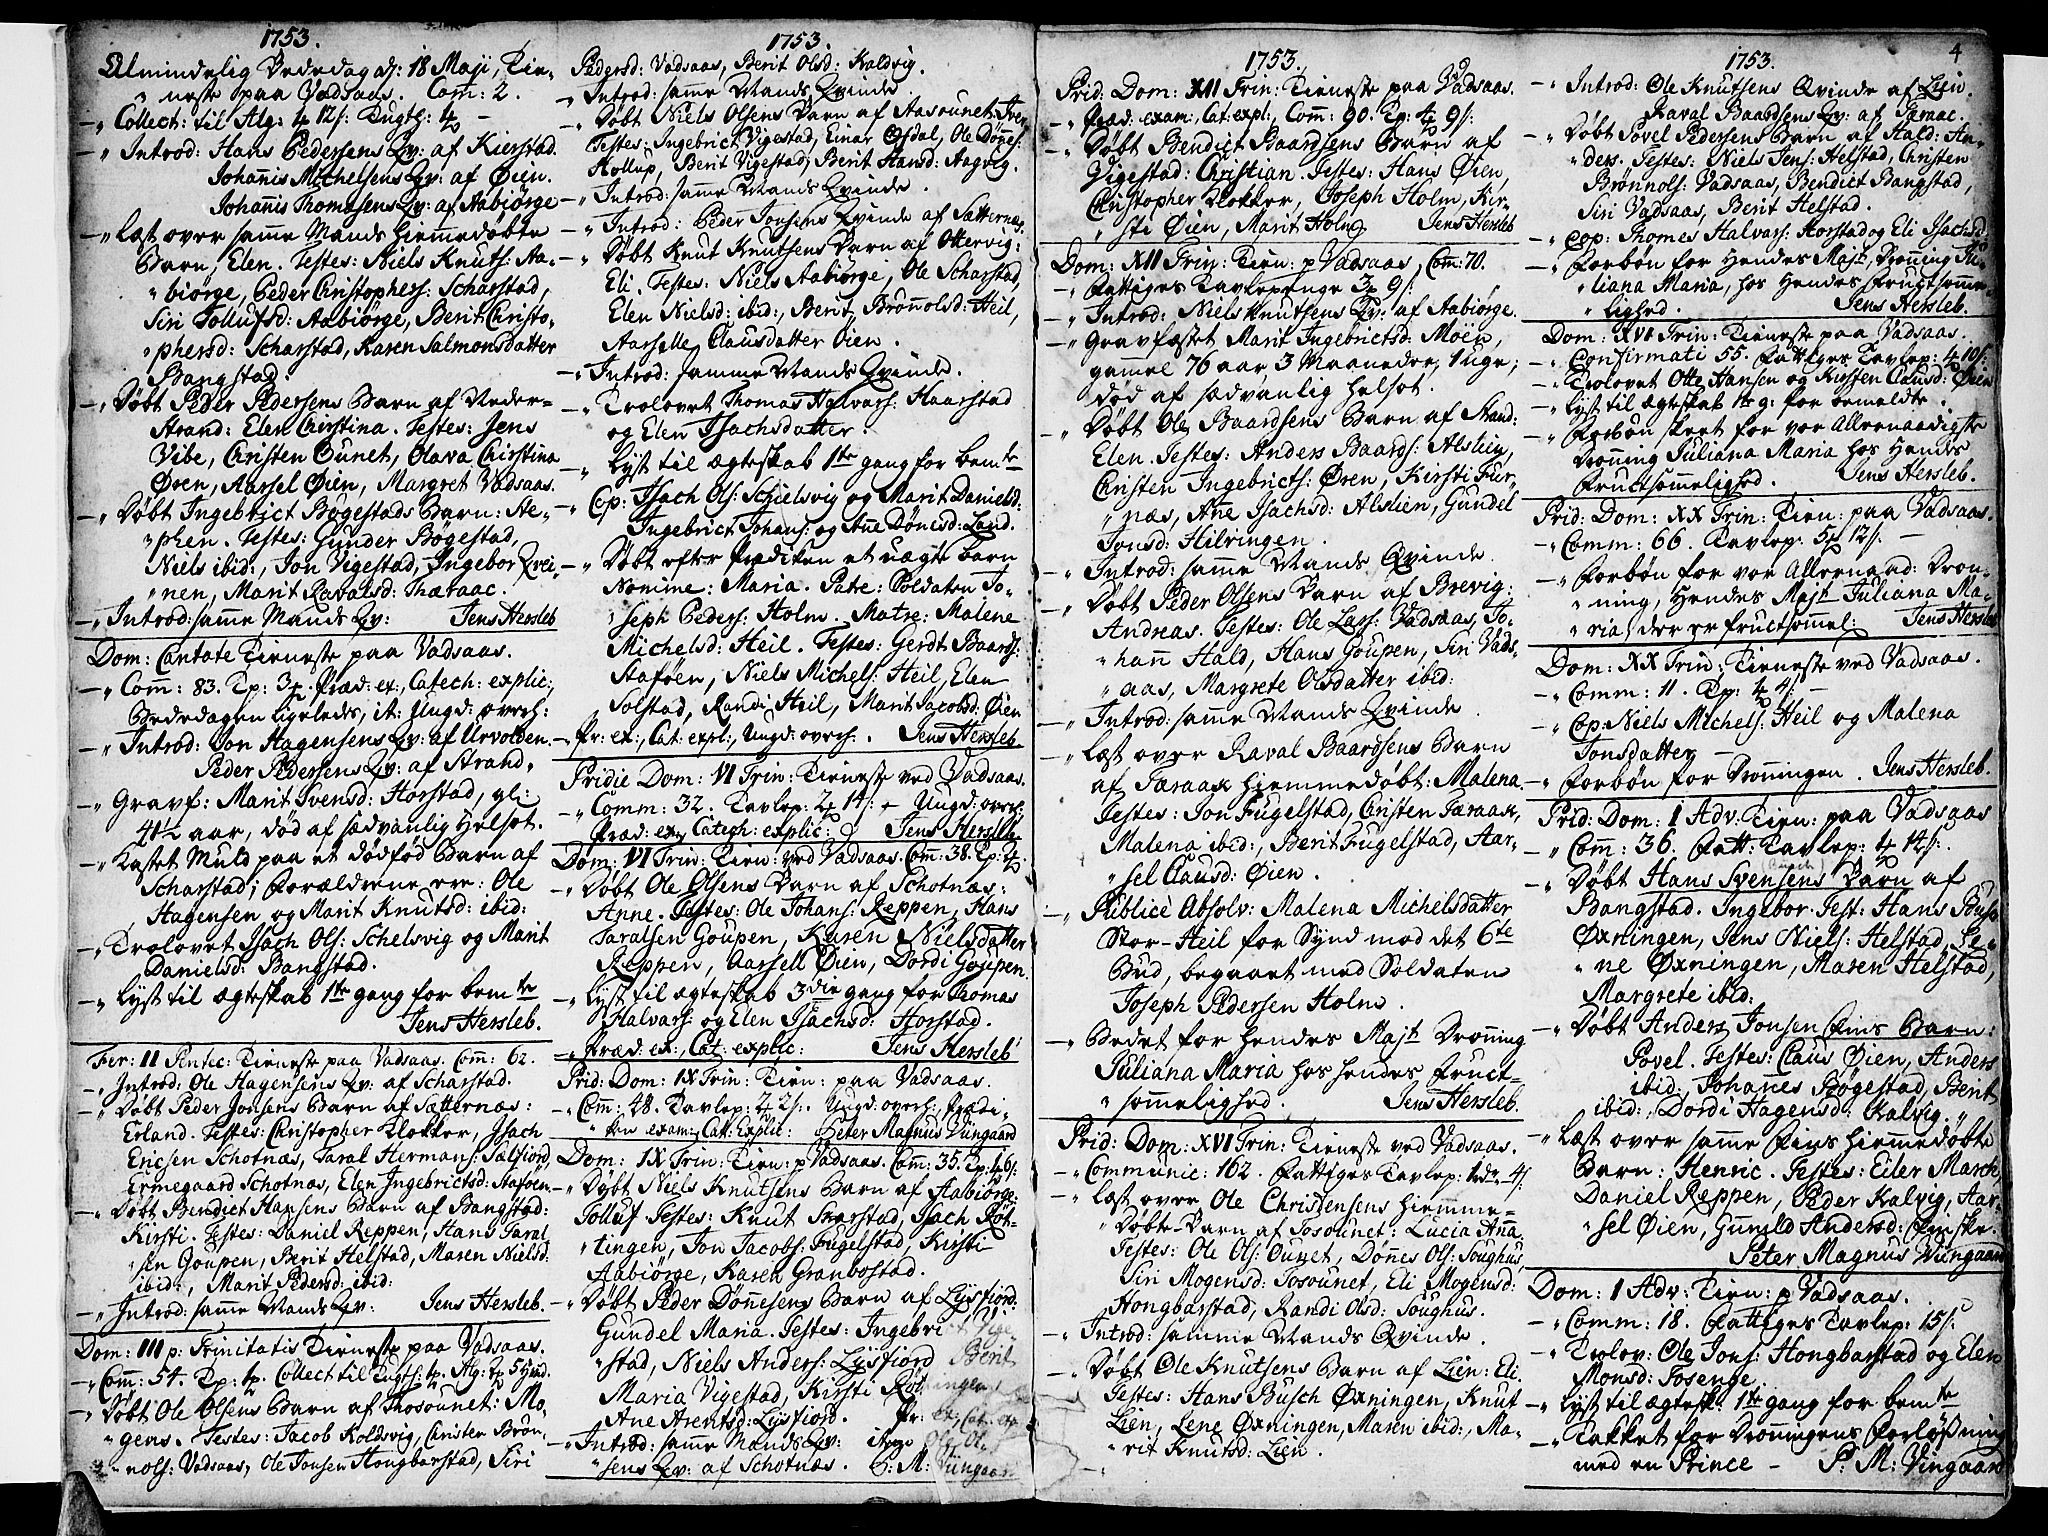 1753.
Almindelig Bededag d: 18 Maji, Tie-
neste paa Vadsaas. Com: 2.
Collect: til Alg: 4 12 s: Tugth: 4
Introd: Hans Pedersens Qv: af Kierstad.
Johañis Michelsens Qv: af Øien.
Johañis Thomasens Qv: af Aabiørge
Læst over samme Mands hiemmedøbte
Barn, Elen. Testes: Niels Knuts: Aa-
biørge, Peder Christophers: Scharstad,
Siri Tollufsd: Aabiørge, Berit Christo-
phersd: Scharstad, Karen Salmonsdatter
Bangstad.
Døbt Peder Pedersens Barn af Neder-
Strand: Elen Christina. Testes: Jens
Vibe, Christen Ounet, Olava Christina
Øren, Aarsel Øien, Margret Vadsaas.
Døbt Ingebrict Bøgestads Barn: Ste-
phen. Testes: Gunder Bøgestad,
Niels ibid:, Jon Vigestad, Ingebor Qvei-
nen, Marit Ravalsd: Thæraac.
Introd: samme Mands Qv: Jens Hersleb
Dom: Cantate Tieneste paa Vadsaas.
Com̃: 83. Tp: 3 Præd: ex:, Catech: explic:,
Bededagen ligeledes, it: Ungd: overh:
Introd: Jon Hagensens Qv: af Urvolden.
Peder Pedersens Qv: af Strand
Gravf: Marit Svensd: Horstad, gl:
41½ aar, død af sædvanlig Helsot.
Kastet Muld paa et dødfød Barn af
Scharstad; Forældrene ere: Ole
Hagensen og Marit Knutsd: ibid:
Trolovet Isach Ols: Schelsvig og Marit
Danielsd: Bangstad.
Lyst til ægteskab 1te gang for bemte
Jens Hersleb.
Fer: II Pentec: Tieneste paa Vadsaas. Com̃: 62.
Introd: Ole Hagensens Qv: af Scharstad.
Døbt Peder Jonsens Barn af Sætternæs:
Erland. Testes: Christopher Klokker, Isach
Ericsen Schotnæs, Taral Hermans: Sælfiord,
Ermegaard Schotnæs, Elen Ingebrictsd: Staføen.
Døbt Bendict Hansens Barn af Bangstad:
Kirsti. Testes: Daniel Reppen, Hans Taral-
sen Goupen, Berit Helstad, Maren Nielsd:
ibid:, Marit Pedersd: ibid:
Introd: samme Mands Qv: Jens Hersleb.
Dom: III p: Trinitatis Tieneste paa Vadsaas.
Com̃: 54. Tp: 4. Collect til Tugth: 4. Alg:
Døbt Ole Olsens Barn af Thosounet: Mo-
gens. Testes: Jacob Koldsvig, Christen Brøn-
nols: Vadsaas, Ole Jonsen Hongbarstad, Siri
1753.
Pedersd: Vadsaas, Berit Olsd: Kaldvig.
Introd: samme Mands Qvinde.
Døbt Niels Olsens Barn af Aasounet: Iver
Testes: Ingebrict Vigestad, Einar Ofsdal, Ole Dønes:
Hollup, Berit Vigestad, Berit Hansd: Aagvig.
Introd: samme Mands Qvinde.
Introd: Peder Jonsens Qvinde af Satternæs.
Døbt Knut Knutsens Barn af Ottervig:
Eli. Testes: Niels Aabiørge, Ole Scharstad,
Elen Nielsd: ibid:, Berit Brønnolsd: Heil,
Aarselle Clausdatter Øien.
Introd: samme Mands Qvinde.
Trolovet Thomas Halvars: Haarstad
og Elen Isachsdatter.
Lyst til ægteskab 1te gang for bemte
Cop: Isach Ols: Schielsvig og Marit Danielsd:
Ingebrict Johans: og Añe Dønisd: Land.
Døbt efter Prædiken et uægte Barn
Nomine: Maria. Patre: Soldaten Jo-
seph Peders: Holm. Matre: Malene
Michelsd: Heil. Testes: Gerdt Baards:
Staføen, Niels Michels: Heil, Elen
Solstad, Randi Heil, Marit Jacobsd: Øien
Pr: ex:, Cat: expl:, Ungd: overh:. Jens Hersleb.
Pridie Dom: VI Trin: Tieneste ved Vadsaas.
Comm: 32. Tavlep: 2 14 s: Ungd: overh:
Præd: ex, Catech: explic: Jens Hersleb
Dom: VI Trin: Tien: ved Vadsaas. Com̃: 38. Tp: 2
Døbt Ole Olsens Barn af Schotnæs:
Anne. Testes: Ole Johans: Reppen, Hans
Taralsen Goupen, Karen Nielsdatter
Reppen, Aarsell Øien, Dordi Goupen.
Lyst til ægteskab 3die gang for Thomas
Halvars: og Elen Isachsd: Horstad.
Præd: ex:, Cat: explic: Jens Hersleb
Prid: Dom: IX Trin: Tien: paa Vadsaas.
Com̃: 48. Tavlep: 2 2 s:. Ungd: overh: Prædi-
ken exam:, Cat: Explic: Peter Magnus Viingaard
Dom: IX Trin: Tien: p Vadsaas. Com̃: 35. Tp: 4 6 s:
Døbt Niels Knutsens Barn af Aabiørge:
Tolluf Testes: Knut Skarstad, Isach Røt-
tingen, Jon Jacobs: Fugelstad, Kirsti
Aabiørge, Karen Granbostad.
Døbt Peder Dønnesens Barn af Lysfiord:
Gundel Maria. Testes: Ingebrict Vige-
stad, Niels Anders: Lysfiord Berit
Maria Vigestad, Kirsti Røttingen,
Ane Arentsd: Lysfiord. Pr: ex:, Cat: ex
Introd: samme Mands Qv: Ole Ol-
sens Qv: af Schotnæs. P: M: Viingaard
1753.
Prid: Dom: XII Trin: Tieneste paa Vadsaas.
Præd: exam:, Cat: expl:, Com̃: 90. Tp: 4 9 s:
Døbt Bendict Baardsens Barn af
Vigestad: Christian. Testes: Hans Øien,
Christopher Klokker, Joseph Holm, Kir-
sti Øien, Marit Holm. Jens Hersleb
Dom: XII Trin: Tien: p Vadsaas, Com̃: 70.
Fattiges Tavlepenge 3 9 s:
Introd: Niels Knutsens Qv: af Aabiørge.
Gravfæstet Marit Ingebrictsd: Moen,
gammel 76 aar, 3 Maaneder, 1 uge;
død af sædvanlig Helsot.
Døbt Ole Baardsens Barn af Strand:
Elen. Testes: Anders Baards: Alstien,
Christen Ingebricts: Øren, Kirsti Fur-
næs, Ane Isachsd: Alstien, Gundel
Jonsd: Hilringen.
Introd: samme Mands Qvinde
Døbt Peder Olsens Barn af Brevig:
Andreas. Testes: Ole Lars: Vadsaas, Jo-
hañ Hald, Hans Goupen, Siri Vads-
aas, Margrete Olsdatter ibid:
Introd: samme Mands Qvinde.
Læst over Raval Baardsens Barn
af Taraax hiemmedøbt: Malena.
Testes: Jon Fugelstad, Christen Taraax,
Malena ibid:, Berit Fugelstad, Aar-
sel Clausd: Øien.
Publicè Absolv: Malena Michelsdatter
Stor-Heil for Synd mod det 6te
Bud, begaaet med Soldaten
Joseph Pedersen Holm.
Bedet for hendes Majt Droñing
Juliana Maria hos hendes Fruct-
sommelighed. Jens Hersleb.
Prid: Dom: XVI Trin: Tieneste ved Vadsaas.
Communic: 162. Fattiges Tavlep: 1 rdr 4 s:
Læst over Ole Christensens hiemme-
døbte Barn af Tosounet: Lucia Aña.
Testes: Ole Ols: Ounet, Dønnes Ols: Soughus,
Siri Mogensd: Tosounet, Eli Mogensd:
Hongbarstad, Randi Olsd: Soughus.
Introd: samme Mands Qvinde.
Døbt Ole Knutsens Barn af Lien: Eli.
Testes: Hans Busch Øxningen, Knut
Lien, Lene Øxningen, Maren ibid:, Ma-
rit Knutsd: Lien.
4
1753.
Introd: Ole Knutsens Qvinde af Lien.
Raval Baardsens Qv: af Taraac.
Døbt Povel Pedersens Barn af Hald: An-
ders. Testes: Niels Jens: Helstad, Christen
Brønnols: Vadsaas, Bendict Bangstad,
Siri Vadsaas, Berit Helstad.
Cop: Thomes Halvars: Horstad og Eli Isachsd
Forbøn for Hendes Majt, Droñing Ju-
liana Maria, hos Hendes Fructsomme-
lighed. Jens Hersleb.
Dom: XVI Trin: Tieneste paa Vadsaas.
Confirmati 55. Fattiges Tavlep: 4 10 s:
Trolovet Otte Hansen og Kirsten Clausd: Øien
Lyst til ægteskab 1te g: for bemeldte.
Forbøn skeet for vor Allernaadigste
Droñing Juliana Maria hos Hendes
Fructsommelighed. Jens Hersleb.
Prid: Dom: XX Trin: Tien: paa Vadsaas.
Comm: 66. Tavlep: 5 12 s:
Forbøn for vor Allernaad: Dron-
ning, Hendes Majt Juliana Ma-
ria, der er fructsommel: Jens Hersleb
Dom: XX Trin: Tieneste ved Vadsaas.
Comm: 11. Tp: 4 4 s:
Cop: Niels Michels: Heil og Malena
Jonsdatter
Forbøn for Droñingen. Jens Hersleb.
Prid: Dom: 1 Adv: Tien: paa Vadsaas
Com̃: 36. Fatt: Tavlep: 4 14 s:
(Busch)
Døbt Hans Svensens Barn af
Bangstad. Ingebor. Test: Hans Busch
Øxningen, Jens Niels: Helstad, Le-
ne Øxningen, Maren Helstad,
Margrete ibid:
Døbt Anders Jonsen Fins Barn:
Povel. Testes: Claus Øien, Anders
ibid: Johañes Bøgestad, Berit
ibid:, Dordi Hagensd: Kalvig.
Læst over samme Fins hiemmedøbte
Barn: Henric. Testes: Eiler March,
Daniel Reppen, Peder Kalvig, Aar-
sel Øien, Gunild Andersd: Finske
Peter Magnus Viingaard
Dom: 1 Adv: Tien: p Vadsaas.
Comm: 18. Fattiges Tavlep: 15 s:
Trolov: Ole Jons: Hongbarstad og Elen
Monsd: Tosenge.
Lyst til ægtesk: 1te gang for bemte
Takket for Droñingens Forløsning
med en Prince — P: M: Viingaard